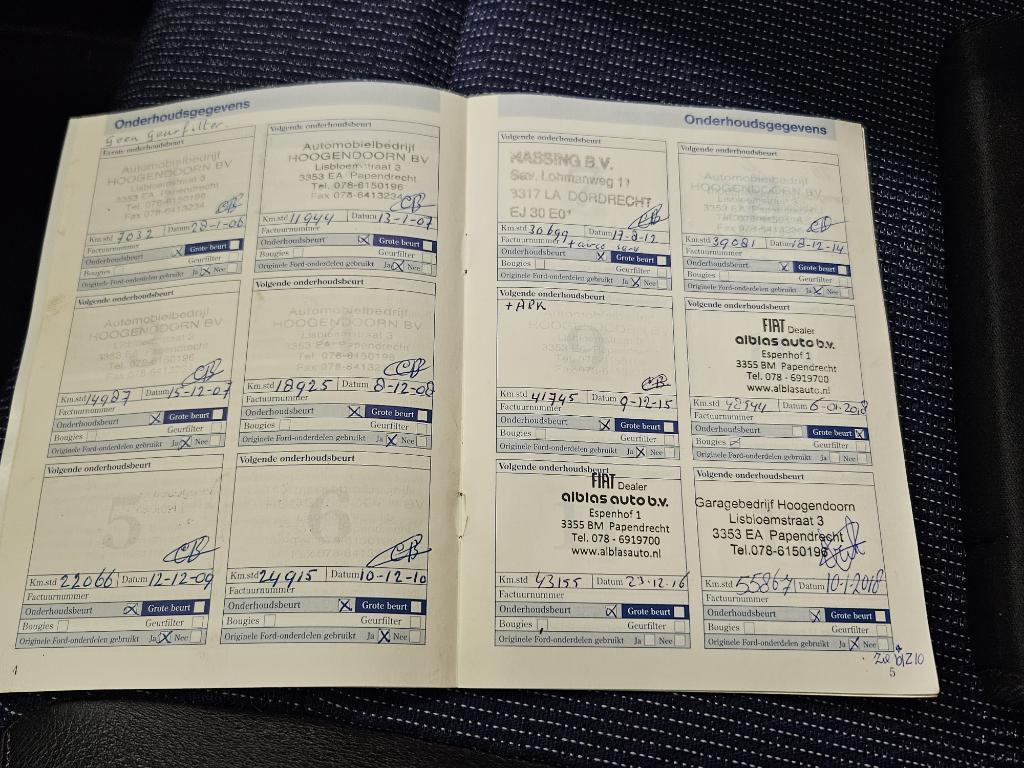 Onderhoudsgegevens
Geen Geurfilter.
Eerste onderhoudsbeurt
Automobielbedrijf
HOOGENDOORN BV
Lisbloemstraat 3
3353 EA Papendrecht
Tel. 078-6150196
Fax 078-6413234
Km.std 7032 Datum 28-1-06
Factuurnummer
Onderhoudsbeurt Grote beurt
Bougies Geurfilter
Originele Ford-onderdelen gebruikt Ja Nee
Volgende onderhoudsbeurt
Automobielbedrijf
HOOGENDOORN BV
Lisbloemstraat 3
3353 EA Papendrecht
Tel. 078-6150196
Fax 078-6413234
Km.std 11944 Datum 13-1-07
Factuurnummer
Onderhoudsbeurt Grote beurt
Bougies Geurfilter
Originele Ford-onderdelen gebruikt Ja Nee
Volgende onderhoudsbeurt
Automobielbedrijf
HOOGENDOORN BV
Lisbloemstraat 3
3353 EA Papendrecht
Tel. 078-6150196
Km.std 14987 Datum 15-12-07
Factuurnummer
Onderhoudsbeurt Grote beurt
Bougies Geurfilter
Originele Ford-onderdelen gebruikt Ja Nee
Volgende onderhoudsbeurt
Automobielbedrijf
HOOGENDOORN BV
Lisbloemstraat 3
3353 EA Papendrecht
Tel. 078-6150196
Km.std 18925 Datum 8-12-08
Factuurnummer
Onderhoudsbeurt Grote beurt
Bougies Geurfilter
Originele Ford-onderdelen gebruikt Ja Nee
Volgende onderhoudsbeurt
5
Km.std 22066 Datum 12-12-09
Factuurnummer
Onderhoudsbeurt Grote beurt
Bougies Geurfilter
Originele Ford-onderdelen gebruikt Ja Nee
Volgende onderhoudsbeurt
6
Km.std 24915 Datum 10-12-10
Factuurnummer
Onderhoudsbeurt Grote beurt
Bougies Geurfilter
Originele Ford-onderdelen gebruikt Ja Nee
4
Onderhoudsgegevens
Volgende onderhoudsbeurt
HASSING B.V.
Sav. Lohmanweg 11
3317 LA DORDRECHT
EJ 30 E01
Km.std 30699 Datum 17-8-12
Factuurnummer + airco serv
Onderhoudsbeurt Grote beurt
Bougies Geurfilter
Originele Ford-onderdelen gebruikt Ja Nee
Volgende onderhoudsbeurt
Automobielbedrijf
HOOGENDOORN BV
Km.std 39081 Datum 18-12-14
Factuurnummer
Onderhoudsbeurt Grote beurt
Bougies Geurfilter
Originele Ford-onderdelen gebruikt Ja Nee
Volgende onderhoudsbeurt
+ APK
9
Km.std 41745 Datum 9-12-15
Factuurnummer
Onderhoudsbeurt Grote beurt
Bougies Geurfilter
Originele Ford-onderdelen gebruikt Ja Nee
Volgende onderhoudsbeurt
FIAT Dealer
alblas auto b.v.
Espenhof 1
3355 BM Papendrecht
Tel. 078 - 6919700
www.alblasauto.nl
Km.std Datum
Factuurnummer
Onderhoudsbeurt Grote beurt
Bougies Geurfilter
Originele Ford-onderdelen gebruikt Ja Nee
Volgende onderhoudsbeurt
FIAT Dealer
alblas auto b.v.
Espenhof 1
3355 BM Papendrecht
Tel. 078 - 6919700
www.alblasauto.nl
Km.std 43155 Datum 23-12-16
Factuurnummer
Onderhoudsbeurt Grote beurt
Bougies Geurfilter
Originele Ford-onderdelen gebruikt Ja Nee
Volgende onderhoudsbeurt
Garagebedrijf Hoogendoorn
Lisbloemstraat 3
3353 EA Papendrecht
Tel.078-6150196
Km.std 55867 Datum 10-1-2018
Factuurnummer
Onderhoudsbeurt Grote beurt
Bougies Geurfilter
Originele Ford-onderdelen gebruikt Ja Nee
Zie blz 10
5